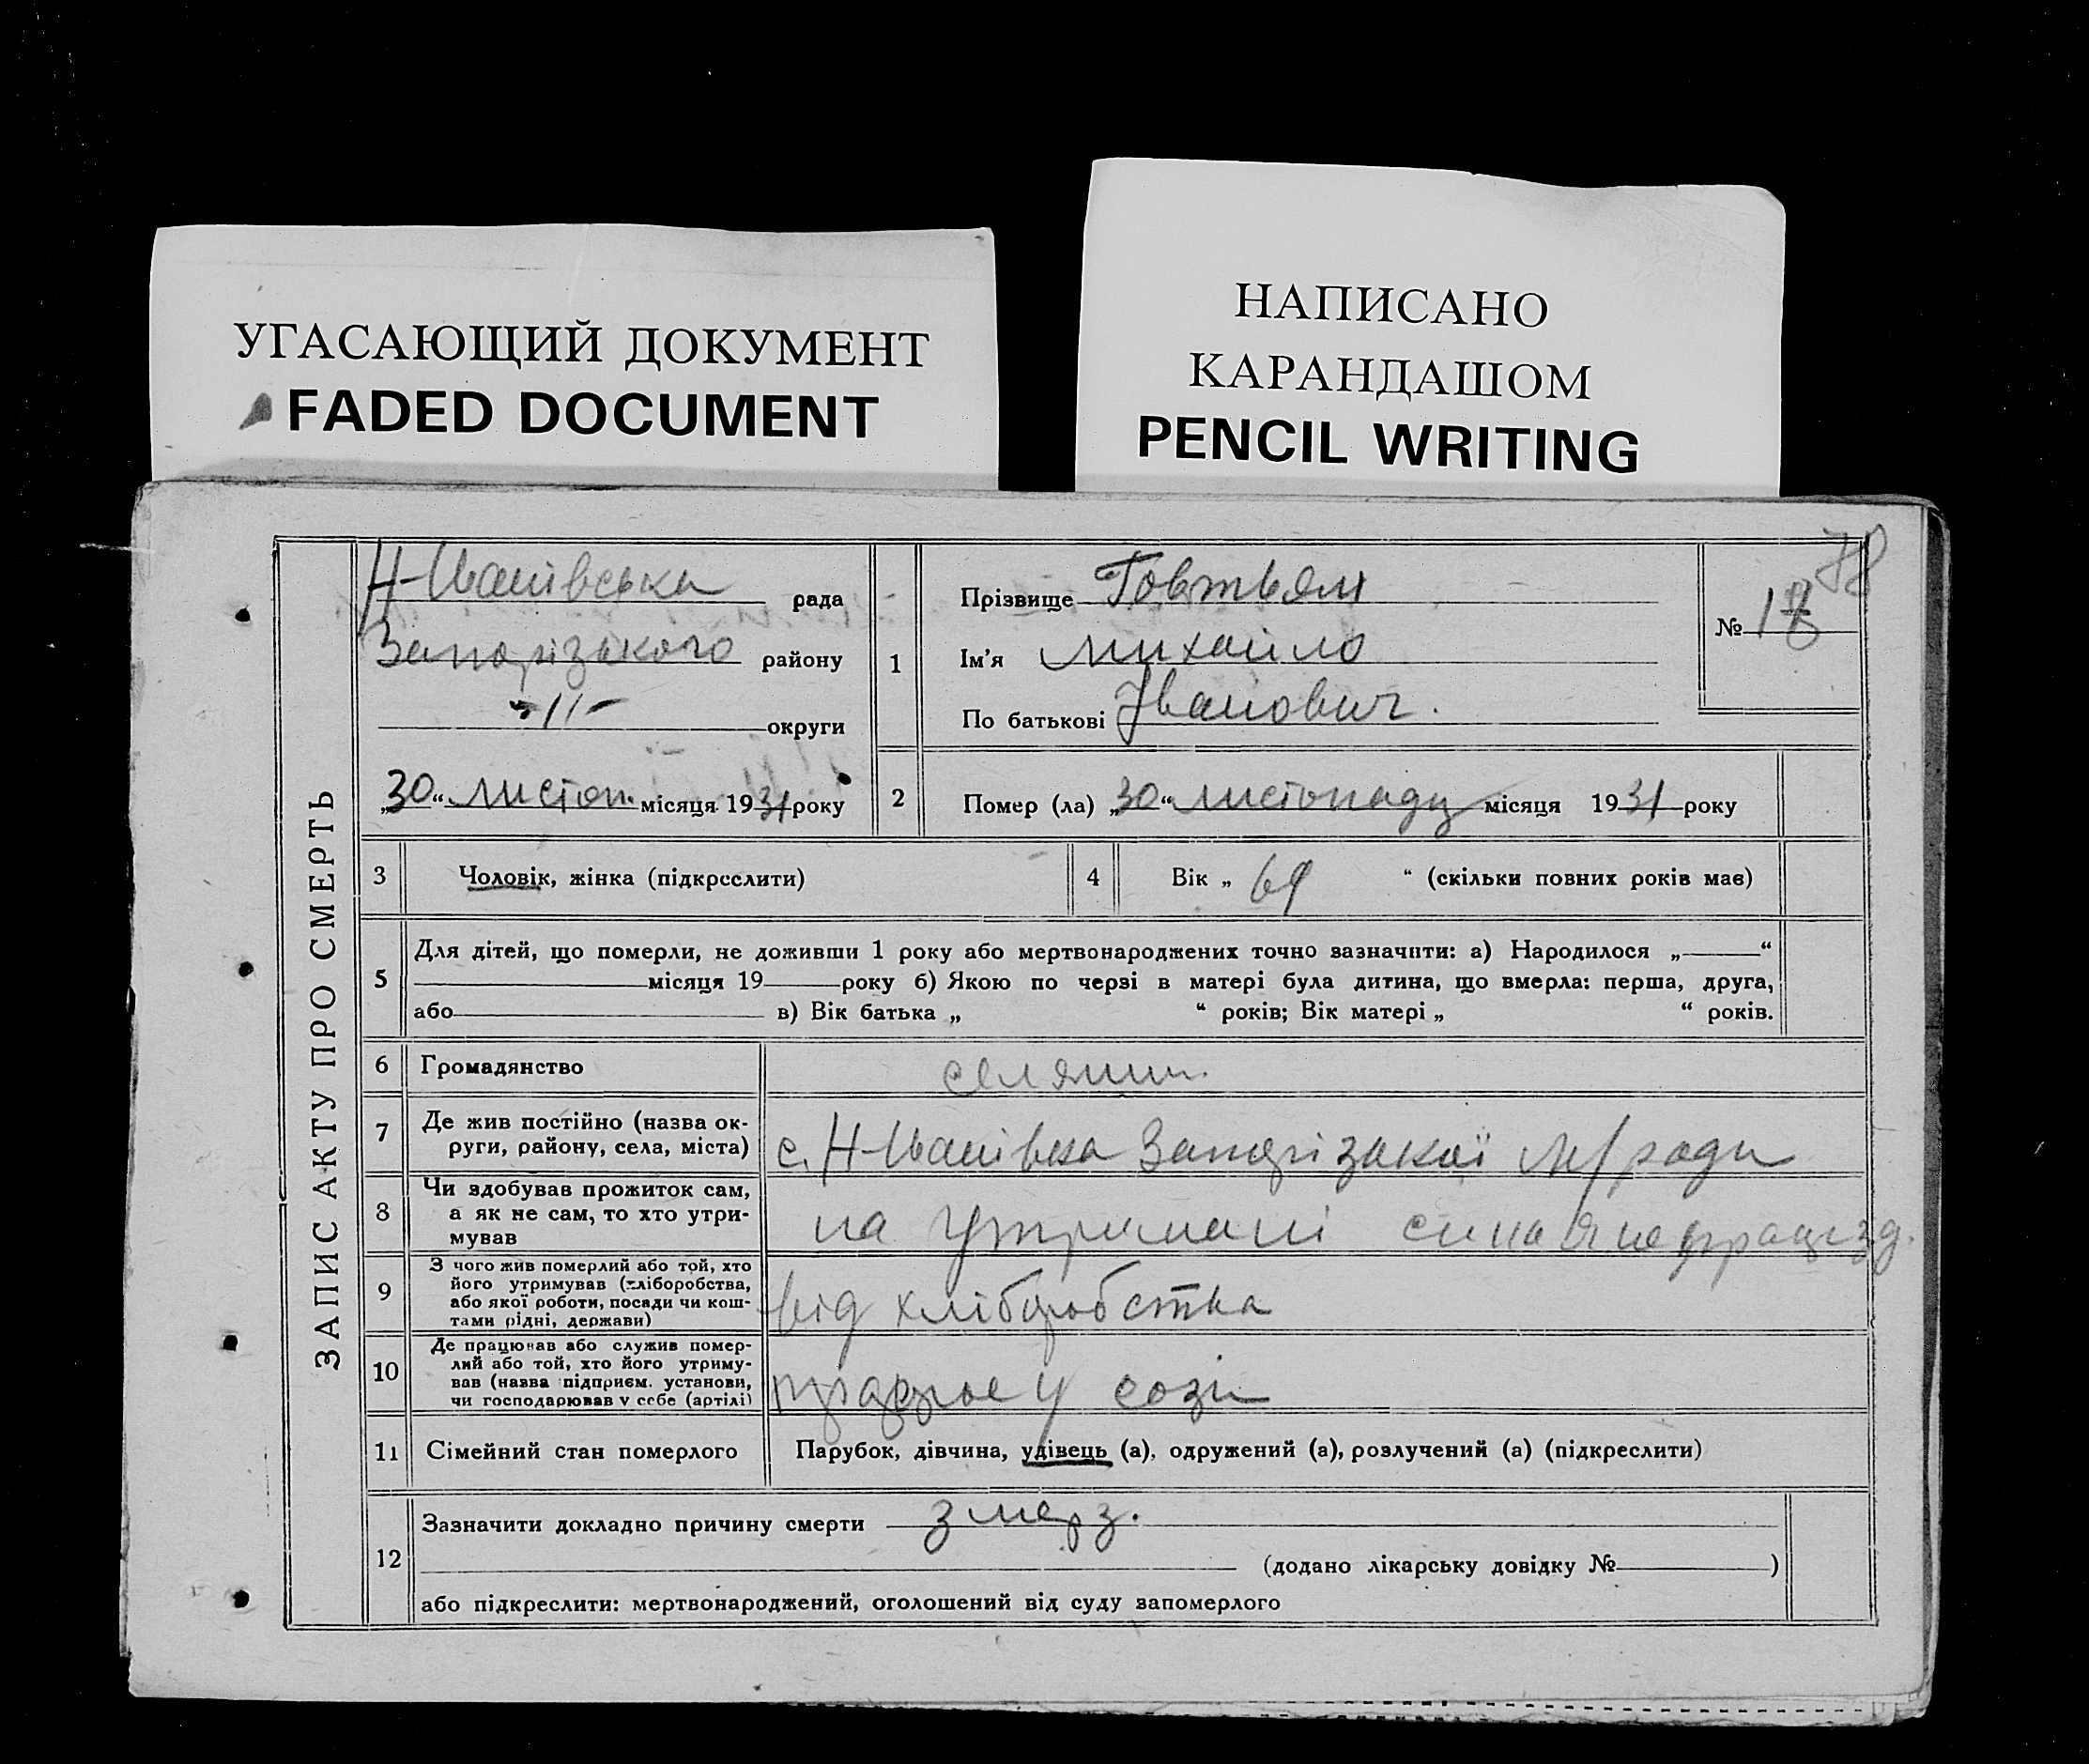 УГАСАЮЩИЙ ДОКУМЕНТ
FADED DOCUMENT
НАПИСАНО
КАРАНДАШОМ
PENCIL WRITING
78
ЗАПИС АКТУ ПРО СМЕРТЬ
Н-Іванівська рада
Запорізького району
-//- округи
„30“ листоп. місяця 1931 року
1
Прізвище Говтвян
Ім'я Михайло
По батькові Іванович.
№ 18
2 Помер (ла) „30“ листопаду місяця 1931 року
3 Чоловік, жінка (підкреслити)
4 Вік „ 69 “ (скільки повних років має)
5 Для дітей, що померли, не доживши 1 року або мертвонароджених точно зазначити: а) Народилося „ “
місяця 19 року б) Якою по черзі в матері була дитина, що вмерла: перша, друга,
або в) Вік батька „ “ років; Вік матері „ “ років.
6 Громадянство селянин.
7 Де жив постійно (назва ок-
руги, району, села, міста) с. Н-Іванівка Запорізької м/ради
8 Чи здобував прожиток сам,
а як не сам, то хто утри-
мував на утримані сина
9 З чого жив померлий або той, хто
його утримував (хліборобства,
або якої роботи, посади чи кош-
тами рідні, держави) від хліборобства
10 Де працював або служив помер-
лий або той, хто його утриму-
вав (назва підприєм. установи,
чи господарював у себе (артілі) працює у созі
11 Сімейний стан померлого Парубок, дівчина, удівець (а), одружений (а), розлучений (а) (підкреслити)
12 Зазначити докладно причину смерти змерз.
(додано лікарську довідку № )
або підкреслити: мертвонароджений, оголошений від суду запомерлого